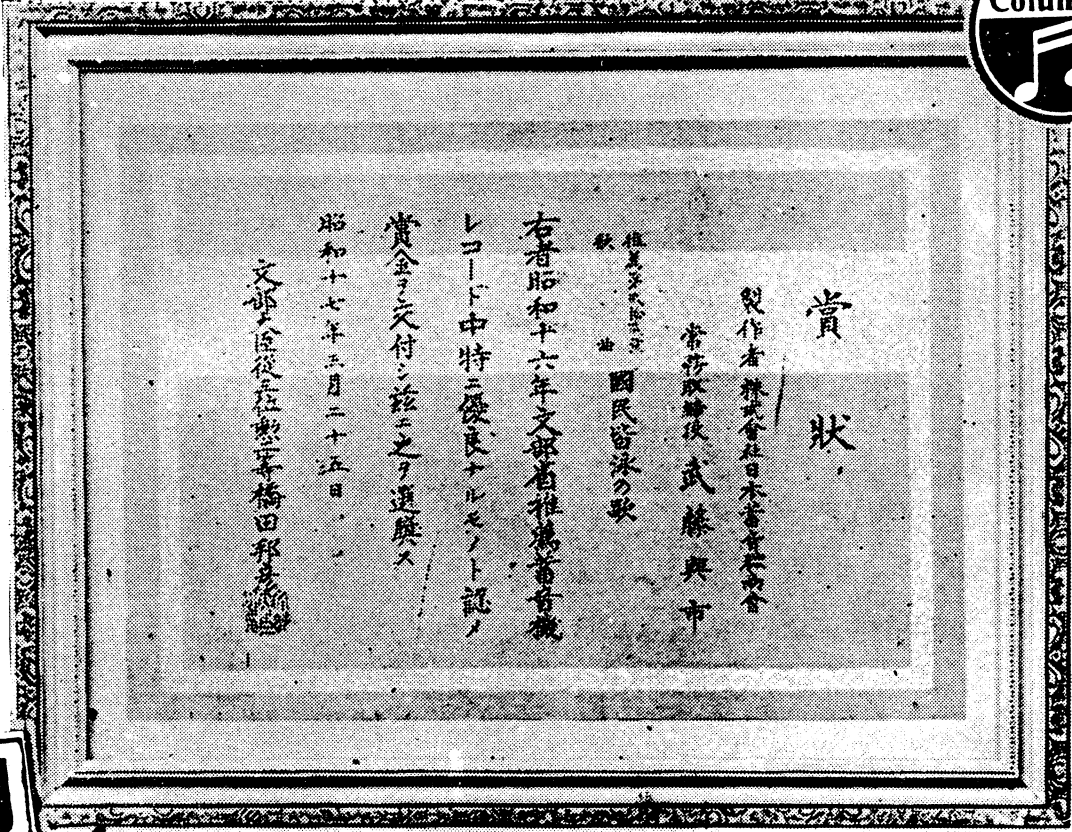 賞狀
製作者 株式會社日本蓄音器商會
常務取締役 武藤與市
歌曲 國民皆泳の歌
右者昭和十六年文部省推薦蓄音機
レコード中特ニ優良ナルモノト認メ
賞金ヲ交付シ玆ニ之ヲ選奬ス
昭和十七年三月二十五日
文部大臣從三位勲二等橋田邦彦